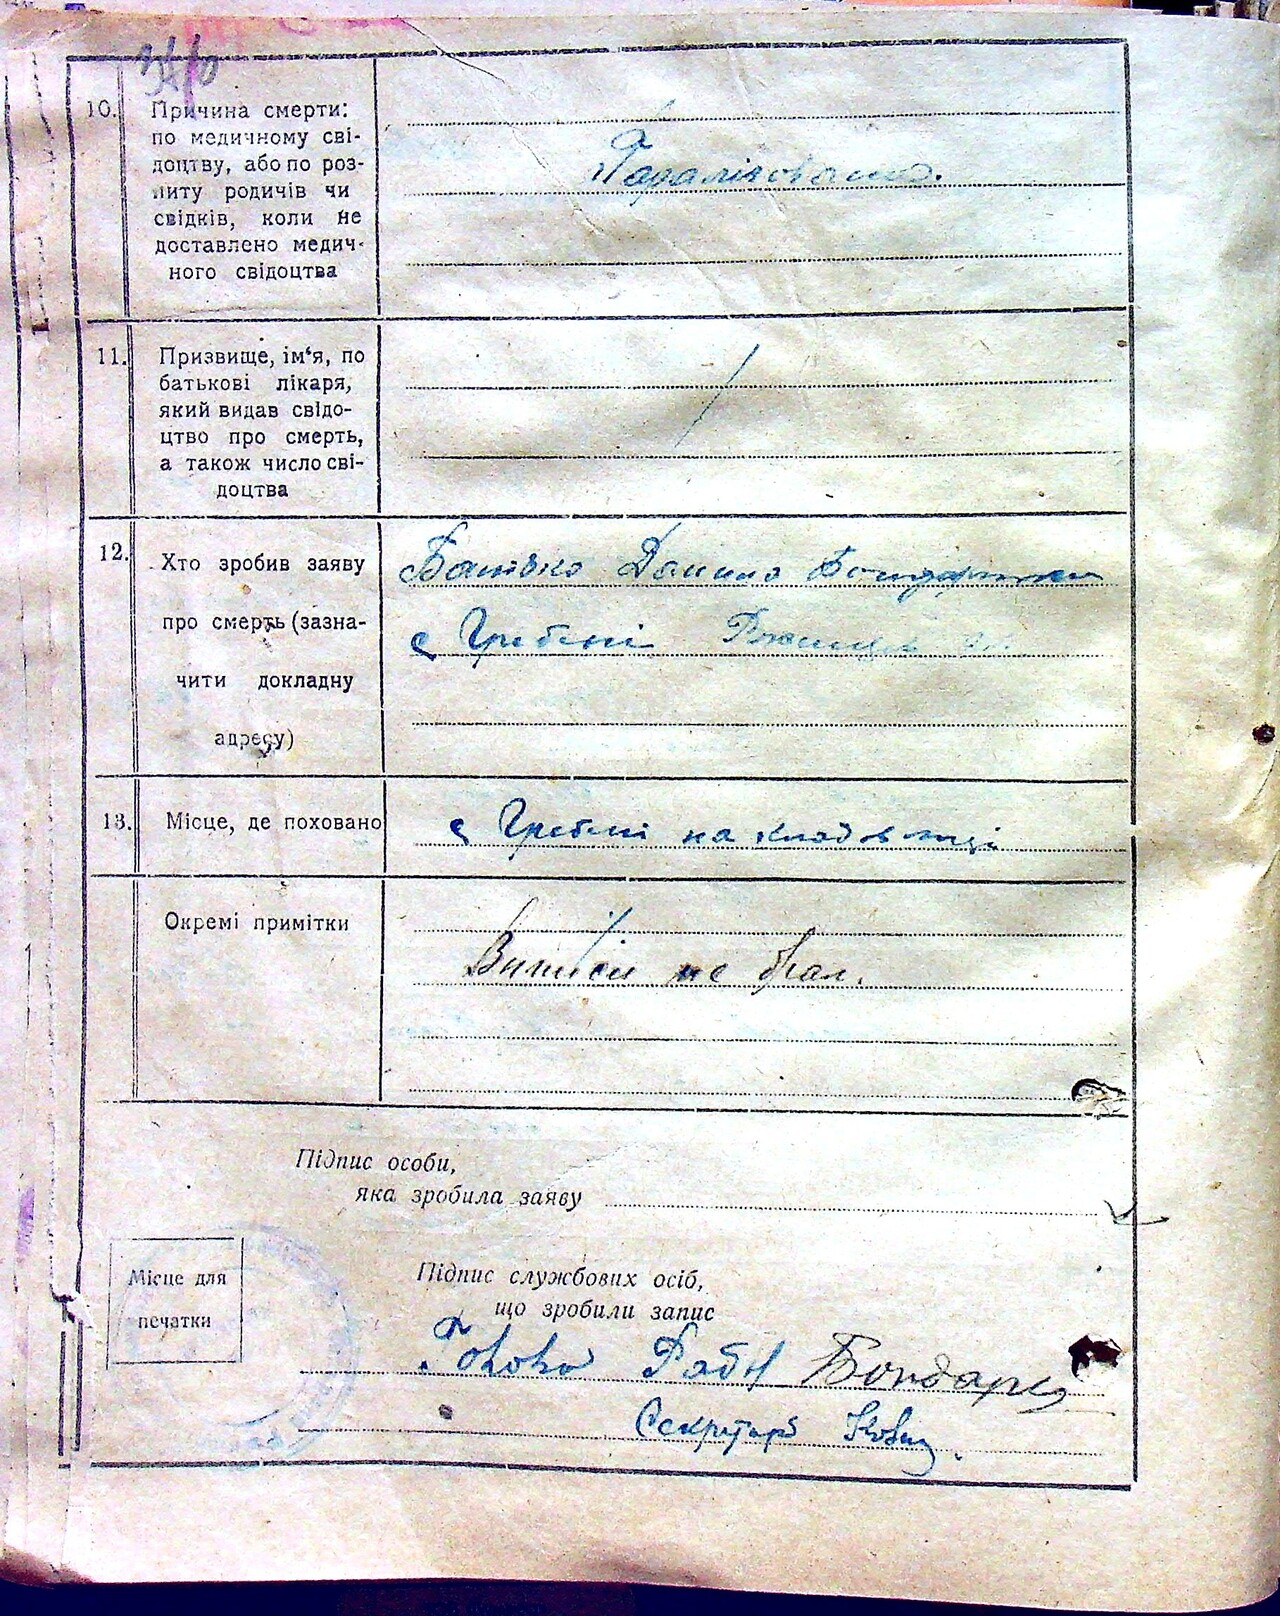 10. Причина смерти:
по медичному сві-
доцтву, або по роз-
питу родичів чи
свідків, коли не
доставлено медич-
ного свідоцтва
11. Призвище, ім'я, по
батькові лікаря,
який видав свідо-
цтво про смерть,
а також число сві-
доцтва
12. Хто зробив заяву
про смерть (зазна-
чити докладну
адресу)
Батько Данило
с Гребені
13. Місце, де поховано
с Гребені на кладовищі
Окремі примітки
Виписи не брал.
Підпис особи,
яка зробила заяву
Місце для
печатки
Підпис службових осіб,
що зробили запис
Голова
Секретарь